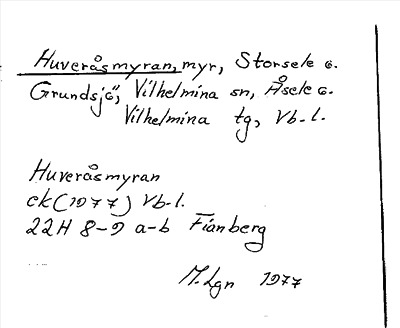 Huveråsmyran, myr, Storsele o.
Grundsjö, Vilhelmina sn, Åsele o.
Vilhelmina tg, Vb-l.
Huveråsmyran
ek (1977) Vb-l.
22H 8-9 a-b Fianberg
M. Lgn 1977